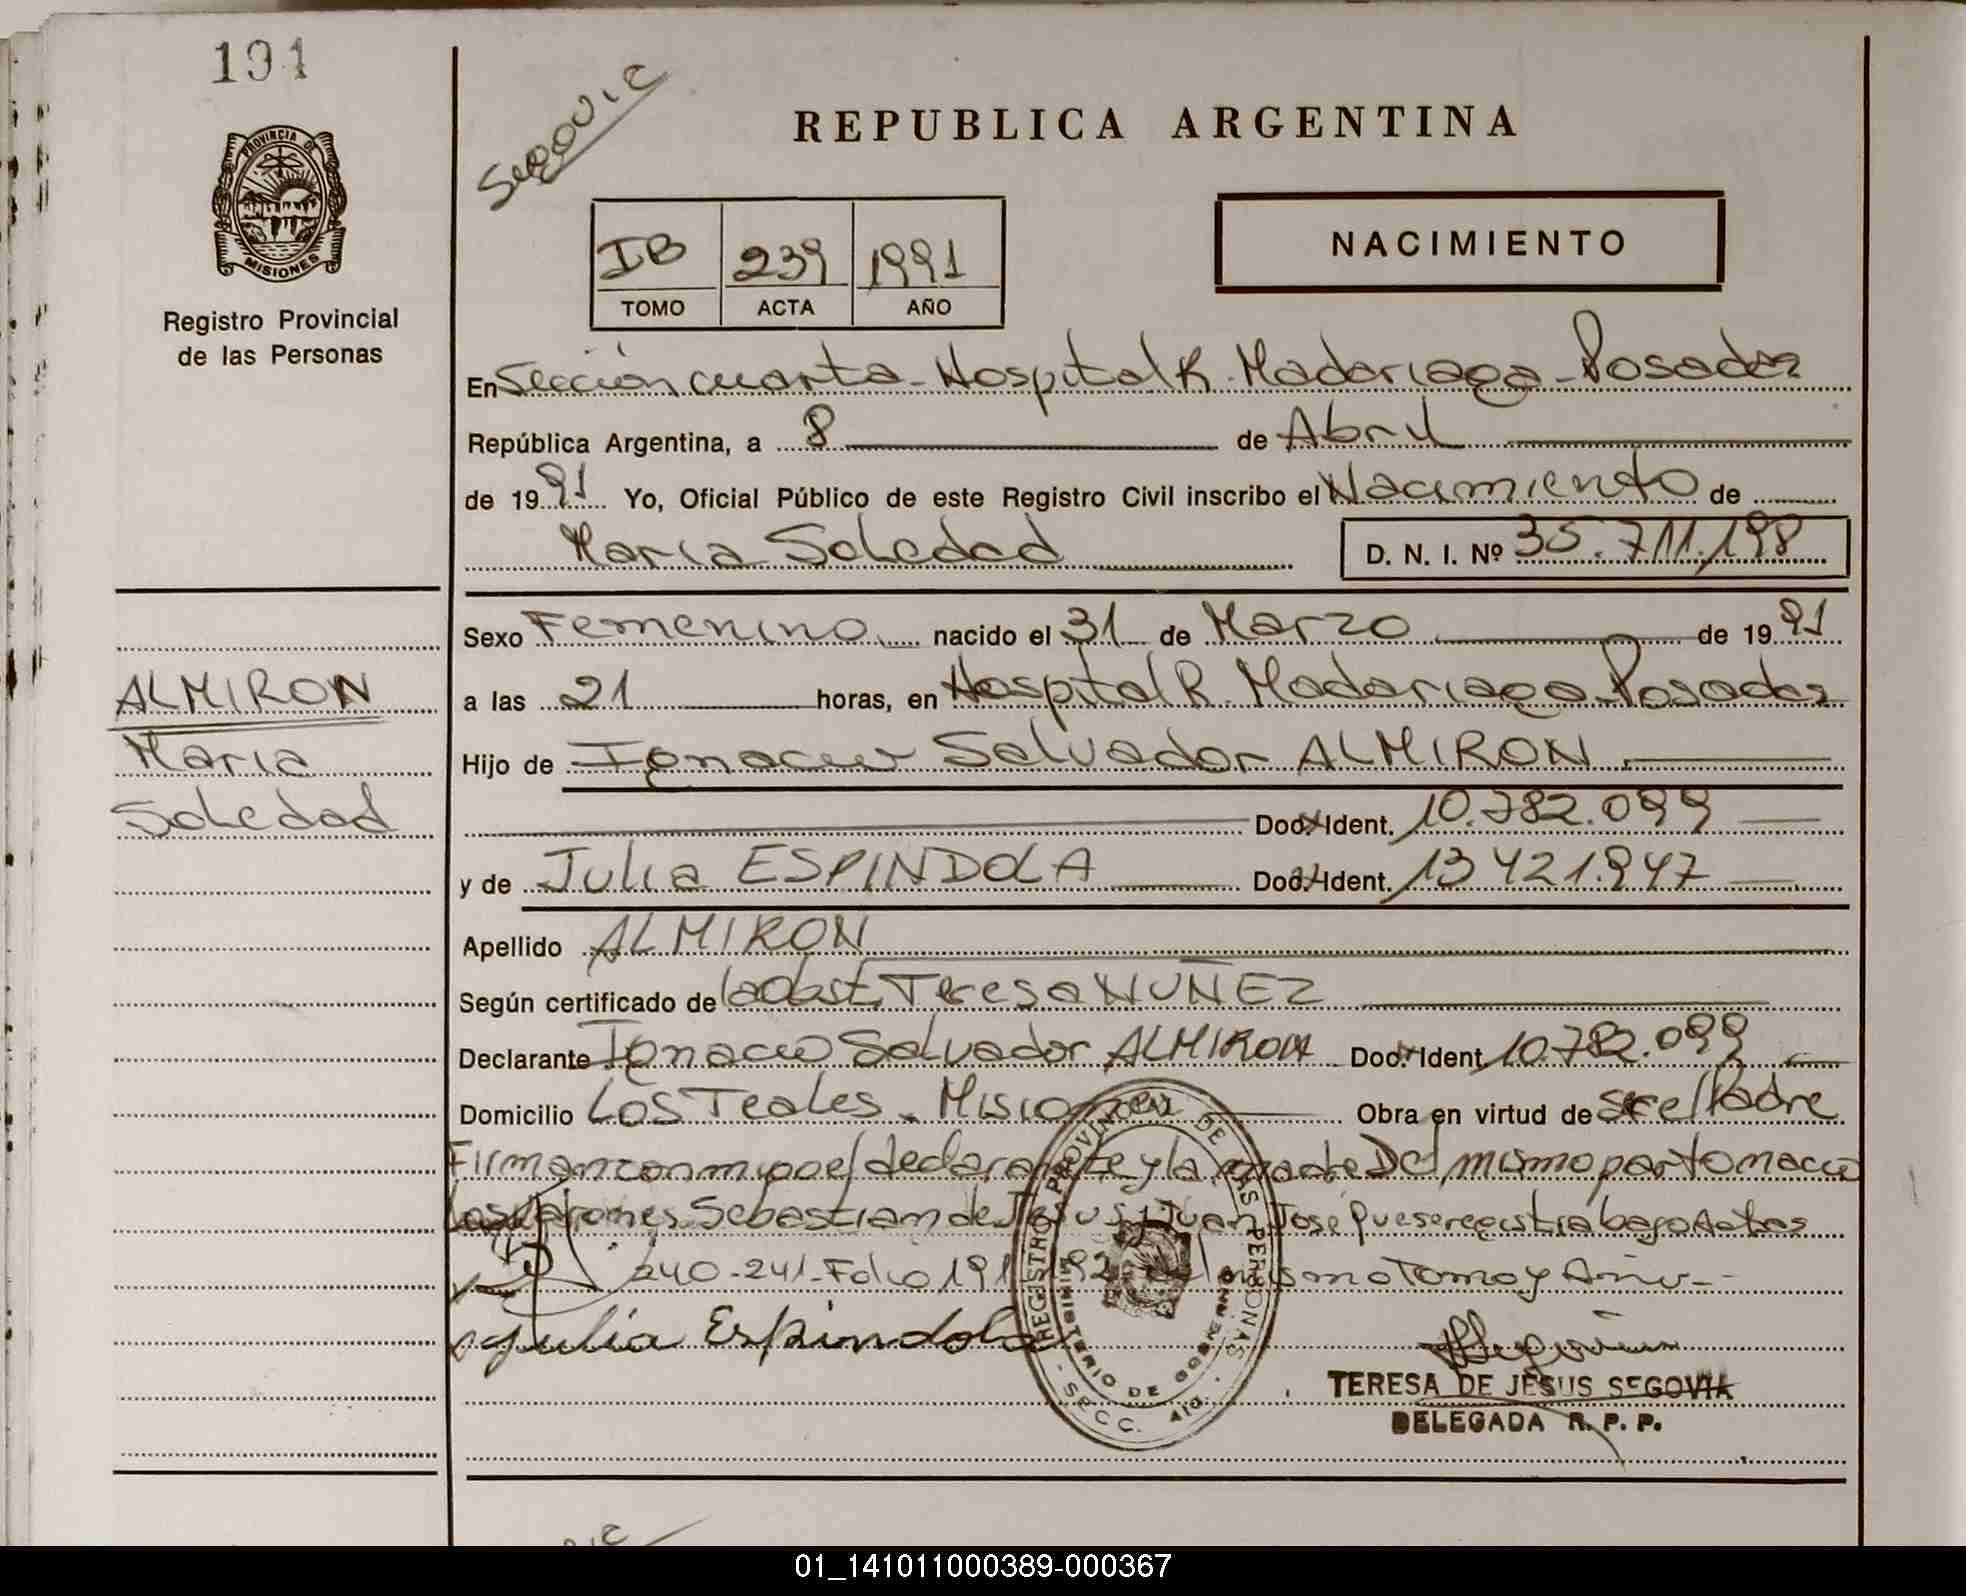 191
Segovia
REPUBLICA ARGENTINA
PROVINCIA DE
MISIONES
Registro Provincial
de las Personas
IB 239 1991
TOMO ACTA AÑO
NACIMIENTO
En Sección cuarta - Hospital R. Madariaga - Posadas
República Argentina, a 8 de Abril
de 1991 Yo, Oficial Público de este Registro Civil inscribo el Nacimiento de
Maria Soledad D. N. I. Nº 35.711.198
Sexo Femenino nacido el 31 de Marzo de 1991
a las 21 horas, en Hospital R. Madariaga - Posadas
Hijo de Ignacio Salvador ALMIRON
Doc. Ident. 10.782.099
y de Julia ESPINDOLA Doc. Ident. 13 421.947
Apellido ALMIRON
Según certificado de la Obst. Teresa NUÑEZ
Declarante Ignacio Salvador ALMIRON Doc. Ident 10.782.099
Domicilio Los Teales - Misiones Obra en virtud de ser el Padre
Firman conmigo el declarante y la madre Del mismo parto nacio
los Varones Sebastian de Jesus y Juan José que se registra bajo Actas
240-241-Folio 191 192 del mismo Tomo y Año--
Julia Espindola
ALMIRON
Maria
Soledad
REGISTRO PROVINCIAL DE LAS PERSONAS
MINISTERIO DE GOBIERNO
- SECC. 4ta. -
TERESA DE JESUS SEGOVIA
DELEGADA R. P. P.
01_141011000389-000367